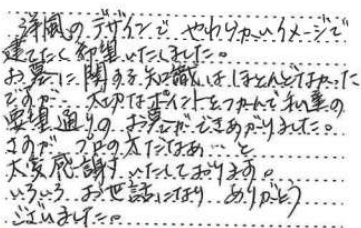 洋風のデザインで やわらかいイメージで
建てたく希望いたしました。
お墓に関する知識は ほとんどなかった
ですが 大切なポイントをつかんで私達の
要望通りの お墓ができあがりました。
さすが プロの方だなあ… と
大変感謝 いたしております。
いろいろ お世話になり ありがとう
ございました。